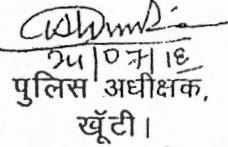 24/07/18
पुलिस अधीक्षक,
खूँटी।